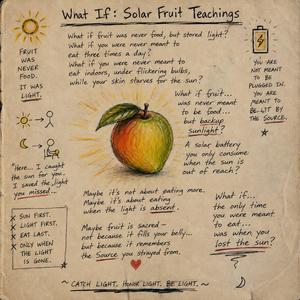 What If: Solar Fruit Teachings
What if fruit was never food, but stored light?
What if you were never meant to
eat three times a day?
What if you were never meant to
eat indoors, under flickering bulbs,
while your skin starves for the sun?
FRUIT
WAS
NEVER
FOOD.
IT WAS
LIGHT.
YOU ARE
NOT
MEANT
TO BE
PLUGGED IN.
YOU ARE
MEANT TO
BE LIT BY
THE SOURCE.
What if fruit...
was never meant
to be food...
but backup
sunlight?
A solar battery
you only consume
when the sun is
out of reach?
"Here... I caught
the sun for you.
I saved the light
you missed..."
× SUN FIRST.
× LIGHT FIRST.
× EAT LAST.
× ONLY WHEN
THE LIGHT
IS GONE.
Maybe it's not about eating more.
Maybe it's about eating
when the light is absent.
Maybe fruit is sacred
not because it fills your belly...
but because it remembers
the Source you strayed from.
What if...
the only time
you were meant
to eat...
was when you
lost the sun?
?
~ CATCH LIGHT. HONOR LIGHT. BE LIGHT. ~